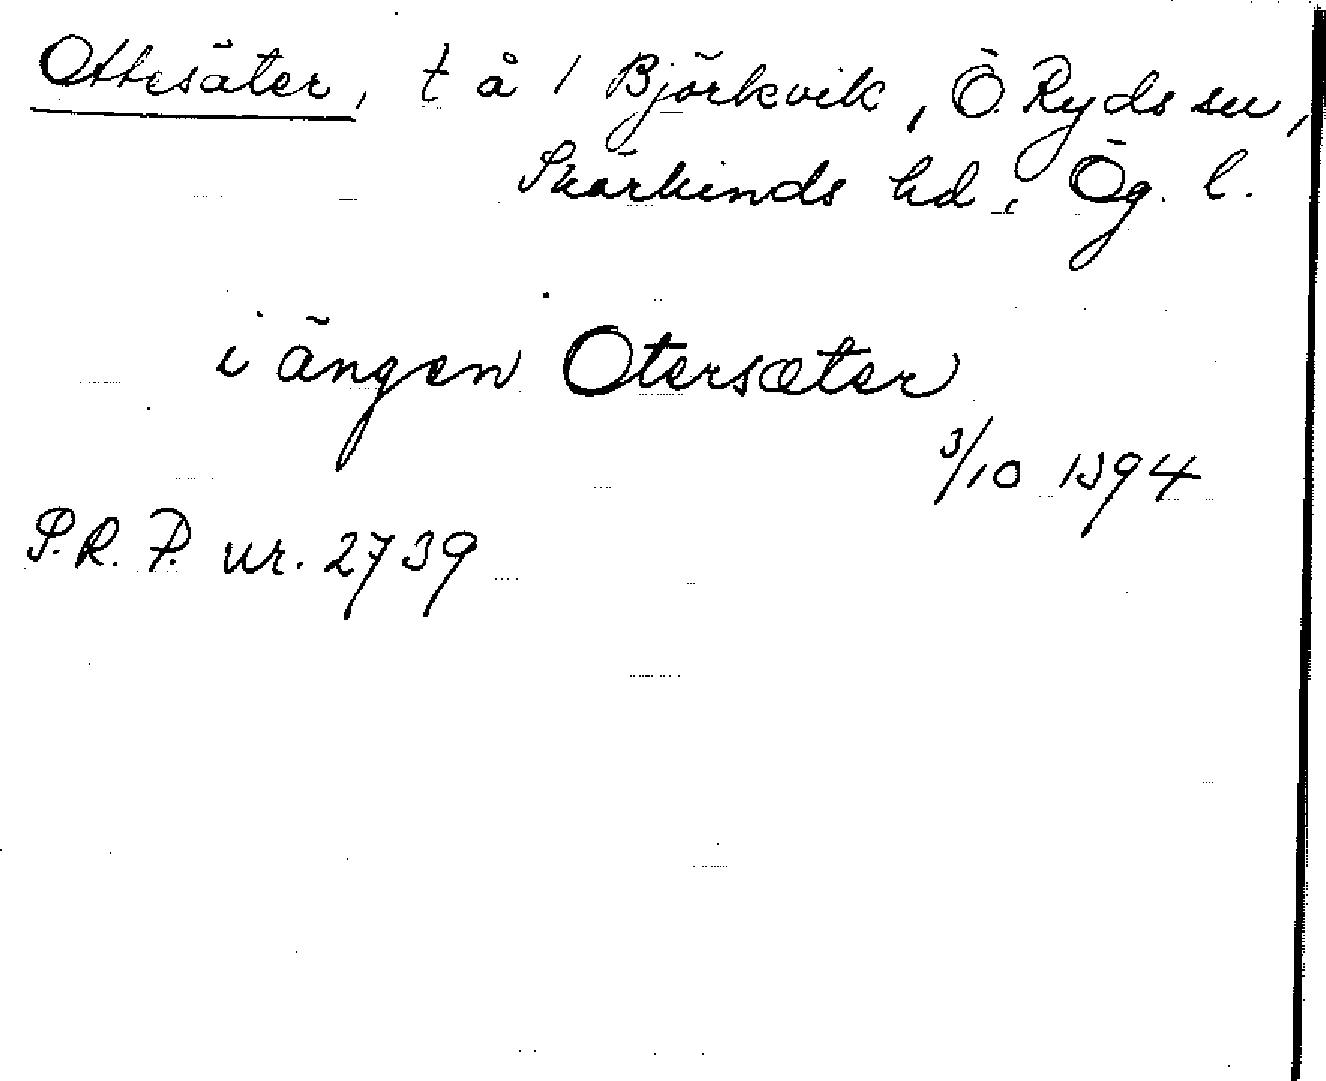 Ottesäter, t å 1 Björkvik, Ö. Ryds sn,
Skärkinds hd, Ög. l.
i ängen Otersæter
3/10 1394
S.R.P. nr. 2739